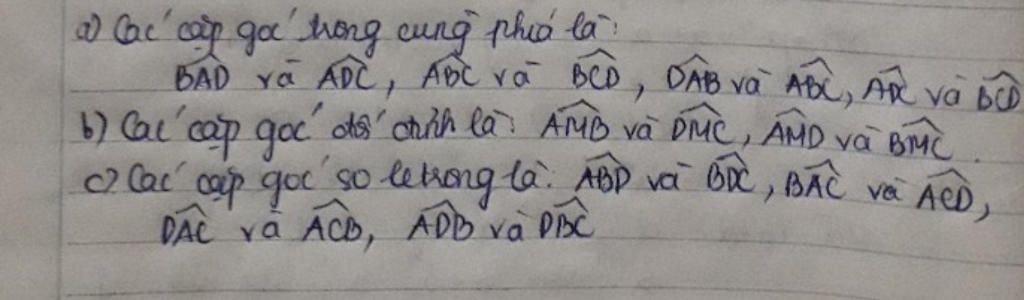 a) Các cặp góc trong cùng phía là:
$\widehat{BAD}$ và $\widehat{ADC}$, $\widehat{ABC}$ và $\widehat{BCD}$, $\widehat{DAB}$ và $\widehat{ABC}$, $\widehat{ADC}$ và $\widehat{BCD}$
b) Các cặp góc đối đỉnh là: $\widehat{AMB}$ và $\widehat{DMC}$, $\widehat{AMD}$ và $\widehat{BMC}$.
c) Các cặp góc so le trong là: $\widehat{ABD}$ và $\widehat{BDC}$, $\widehat{BAC}$ và $\widehat{ACD}$,
$\widehat{DAC}$ và $\widehat{ACB}$, $\widehat{ADB}$ và $\widehat{DBC}$